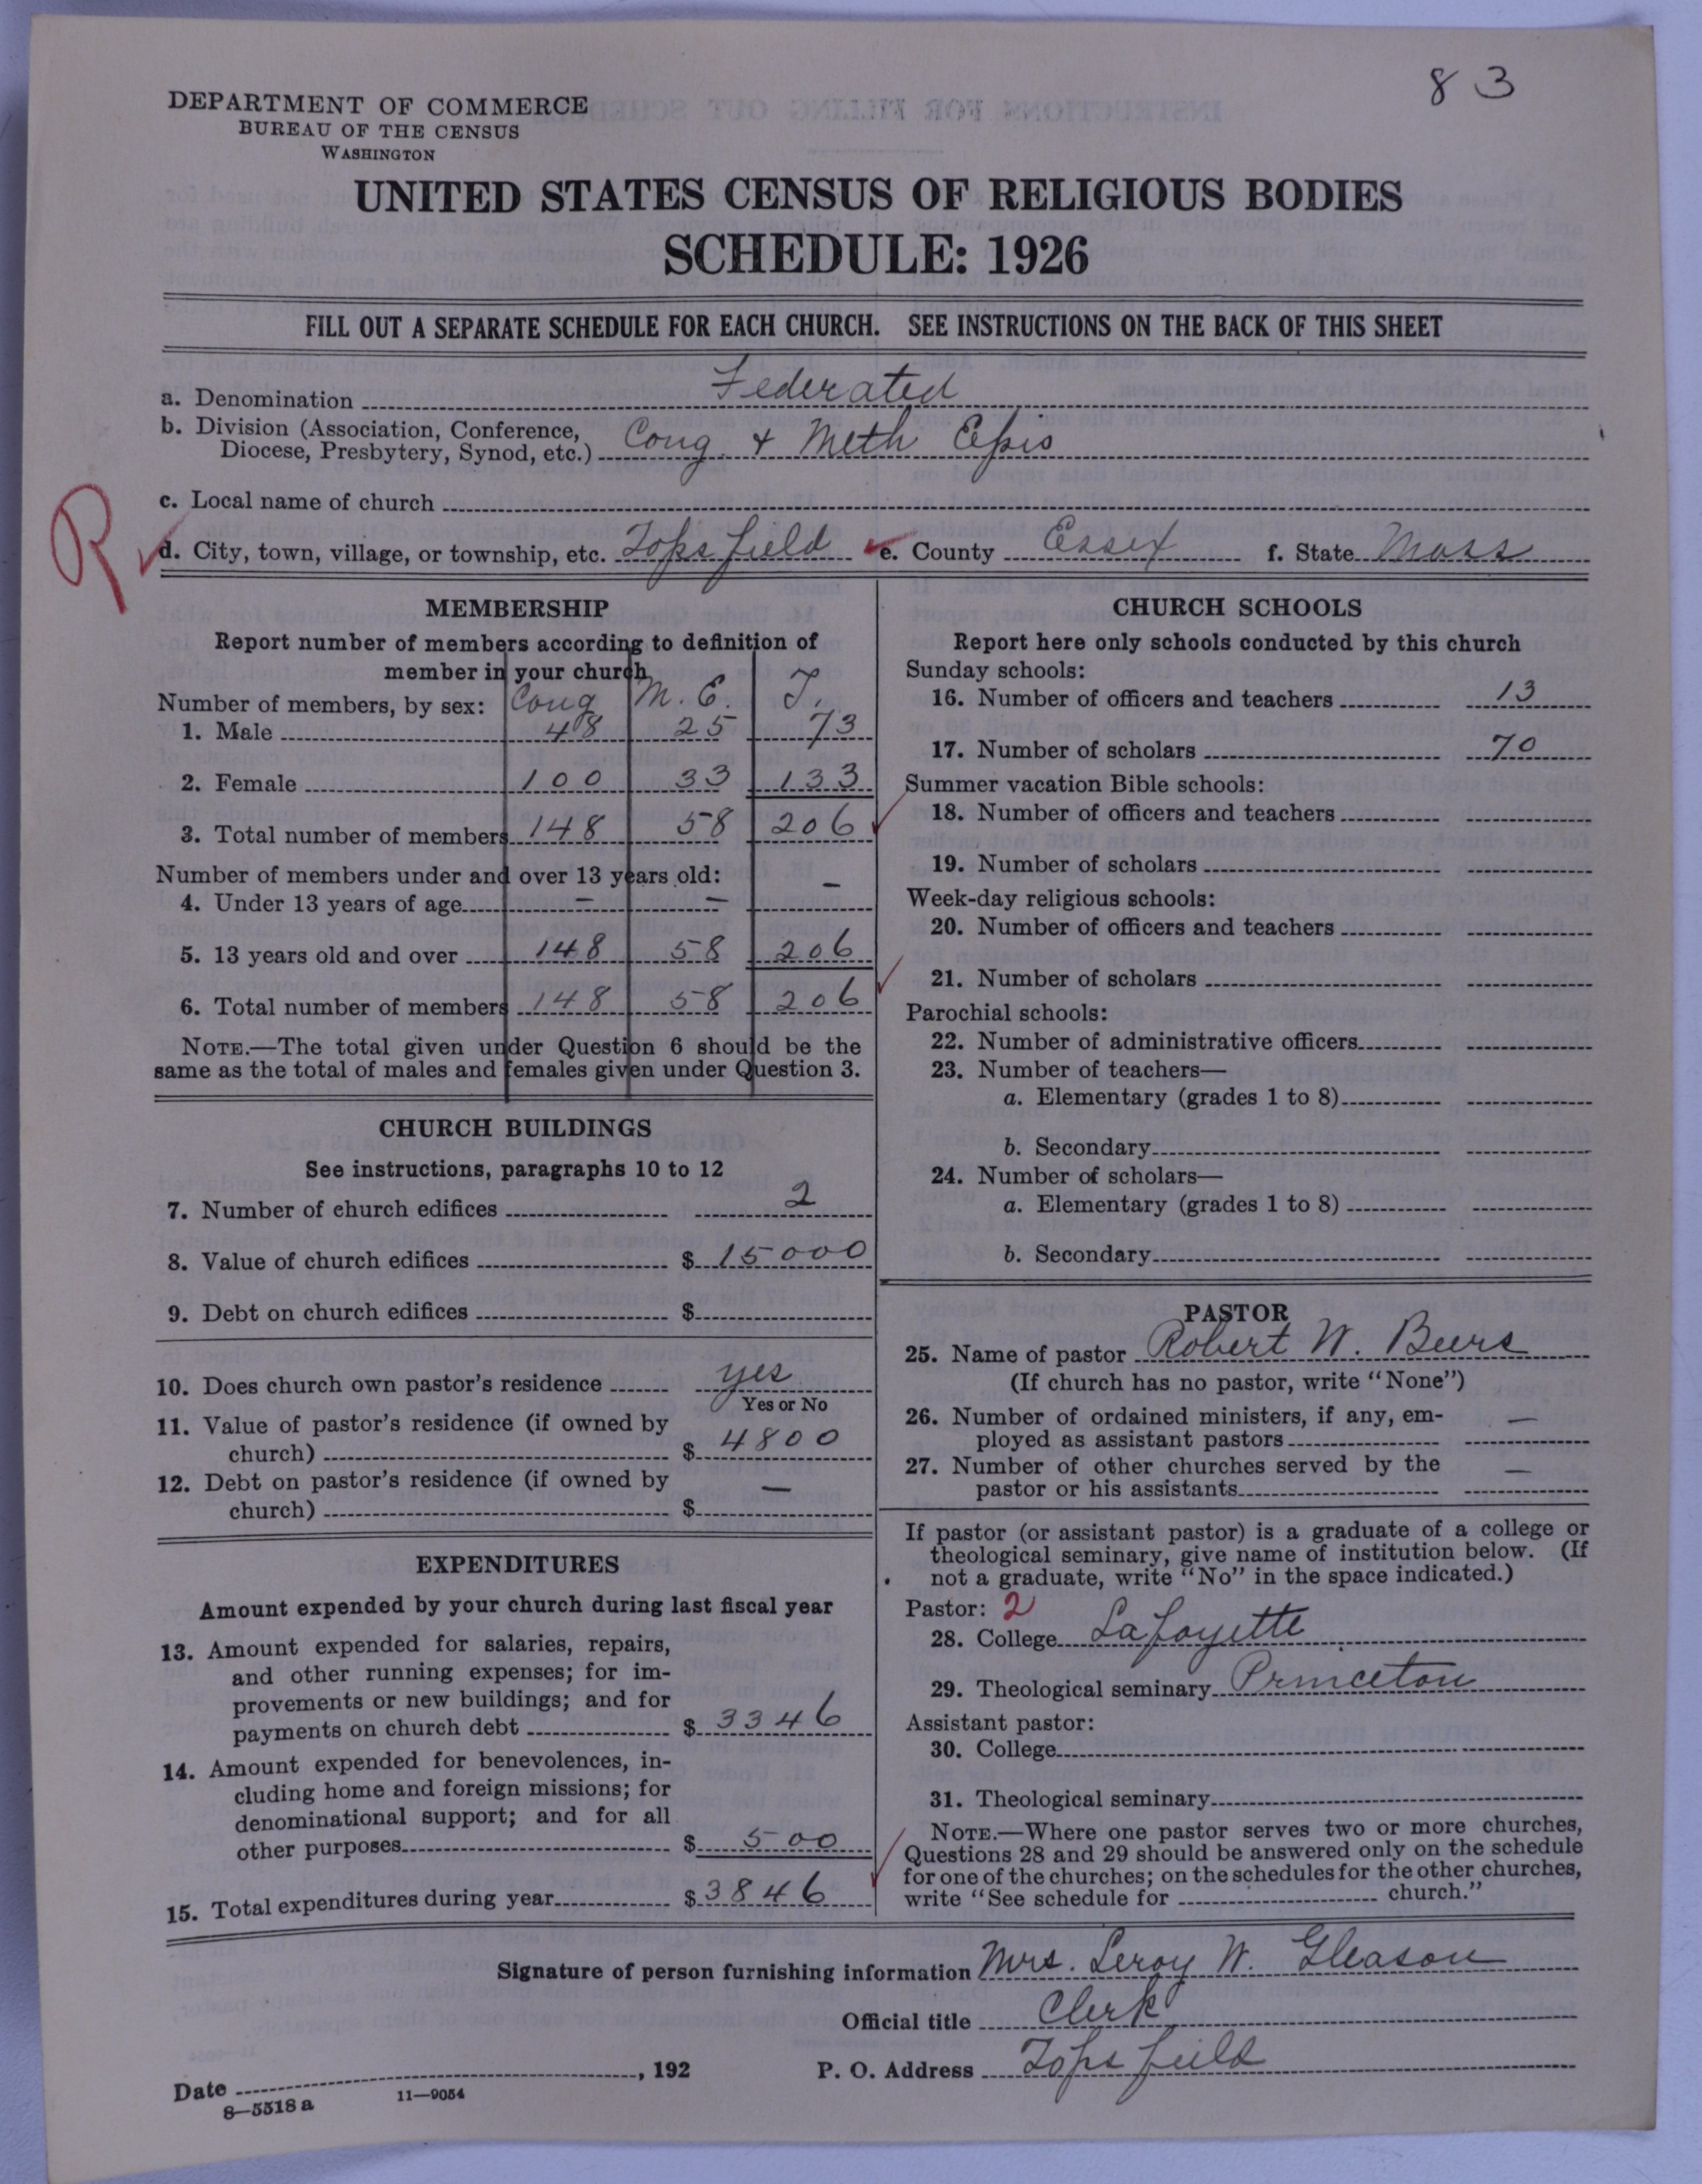 83
DEPARTMENT OF COMMERCE
BUREAU OF THE CENSUS
WASHINGTON
UNITED STATES CENSUS OF RELIGIOUS BODIES
SCHEDULE: 1926
FILL OUT A SEPARATE SCHEDULE FOR EACH CHURCH. SEE INSTRUCTIONS ON THE BACK OF THIS SHEET
a. Denomination Federated
b. Division (Association, Conference, Diocese, Presbytery, Synod, etc.) Cong & Meth Epis
c. Local name of church
R
d. City, town, village, or township, etc. Topsfield e. County Essex f. State Mass
MEMBERSHIP
Report number of members according to definition of
member in your church
Number of members, by sex: Cong M. E. T.
1. Male 48 25 73
2. Female 100 33 133
3. Total number of members 148 58 206
Number of members under and over 13 years old:
4. Under 13 years of age — — —
5. 13 years old and over 148 58 206
6. Total number of members 148 58 206
NOTE.—The total given under Question 6 should be the
same as the total of males and females given under Question 3.
CHURCH BUILDINGS
See instructions, paragraphs 10 to 12
7. Number of church edifices 2
8. Value of church edifices $ 15000
9. Debt on church edifices $
10. Does church own pastor's residence yes
Yes or No
11. Value of pastor's residence (if owned by
church) $ 4800
12. Debt on pastor's residence (if owned by
church) $ —
EXPENDITURES
Amount expended by your church during last fiscal year
13. Amount expended for salaries, repairs,
and other running expenses; for im-
provements or new buildings; and for
payments on church debt $ 3346
14. Amount expended for benevolences, in-
cluding home and foreign missions; for
denominational support; and for all
other purposes $ 500
15. Total expenditures during year $ 3846
CHURCH SCHOOLS
Report here only schools conducted by this church
Sunday schools:
16. Number of officers and teachers 13
17. Number of scholars 70
Summer vacation Bible schools:
18. Number of officers and teachers
19. Number of scholars
Week-day religious schools:
20. Number of officers and teachers
21. Number of scholars
Parochial schools:
22. Number of administrative officers
23. Number of teachers—
a. Elementary (grades 1 to 8)
b. Secondary
24. Number of scholars—
a. Elementary (grades 1 to 8)
b. Secondary
PASTOR
25. Name of pastor Robert W. Beers
(If church has no pastor, write "None")
26. Number of ordained ministers, if any, em-
ployed as assistant pastors —
27. Number of other churches served by the
pastor or his assistants —
If pastor (or assistant pastor) is a graduate of a college or
theological seminary, give name of institution below. (If
not a graduate, write "No" in the space indicated.)
Pastor: 2
28. College Lafayette
29. Theological seminary Princeton
Assistant pastor:
30. College
31. Theological seminary
NOTE.—Where one pastor serves two or more churches,
Questions 28 and 29 should be answered only on the schedule
for one of the churches; on the schedules for the other churches,
write "See schedule for church."
Signature of person furnishing information Mrs. Leroy W. Gleason
Official title Clerk
Date , 192 P. O. Address Topsfield
8—5518 a 11—9054